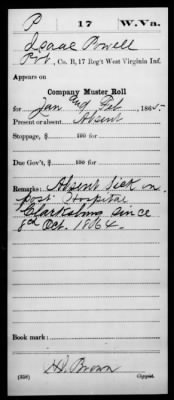 P 17 W.Va.
Isaac Powell
Pvt., Co. B, 17 Reg't West Virginia Inf.
Appears on
Company Muster Roll
for Jan and Feb, 1865.
Present or absent Absent
Stoppage, $ 100 for
Due Gov't, $ 100 for
Remarks: Absent Sick in
post Hospital
Clarksburg since
Oct. 1864.
Book mark:
(358) H.D. Brown
Copyist.